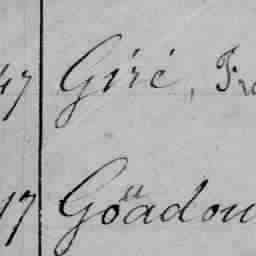 47 Giré, Fr
17 Goüadou